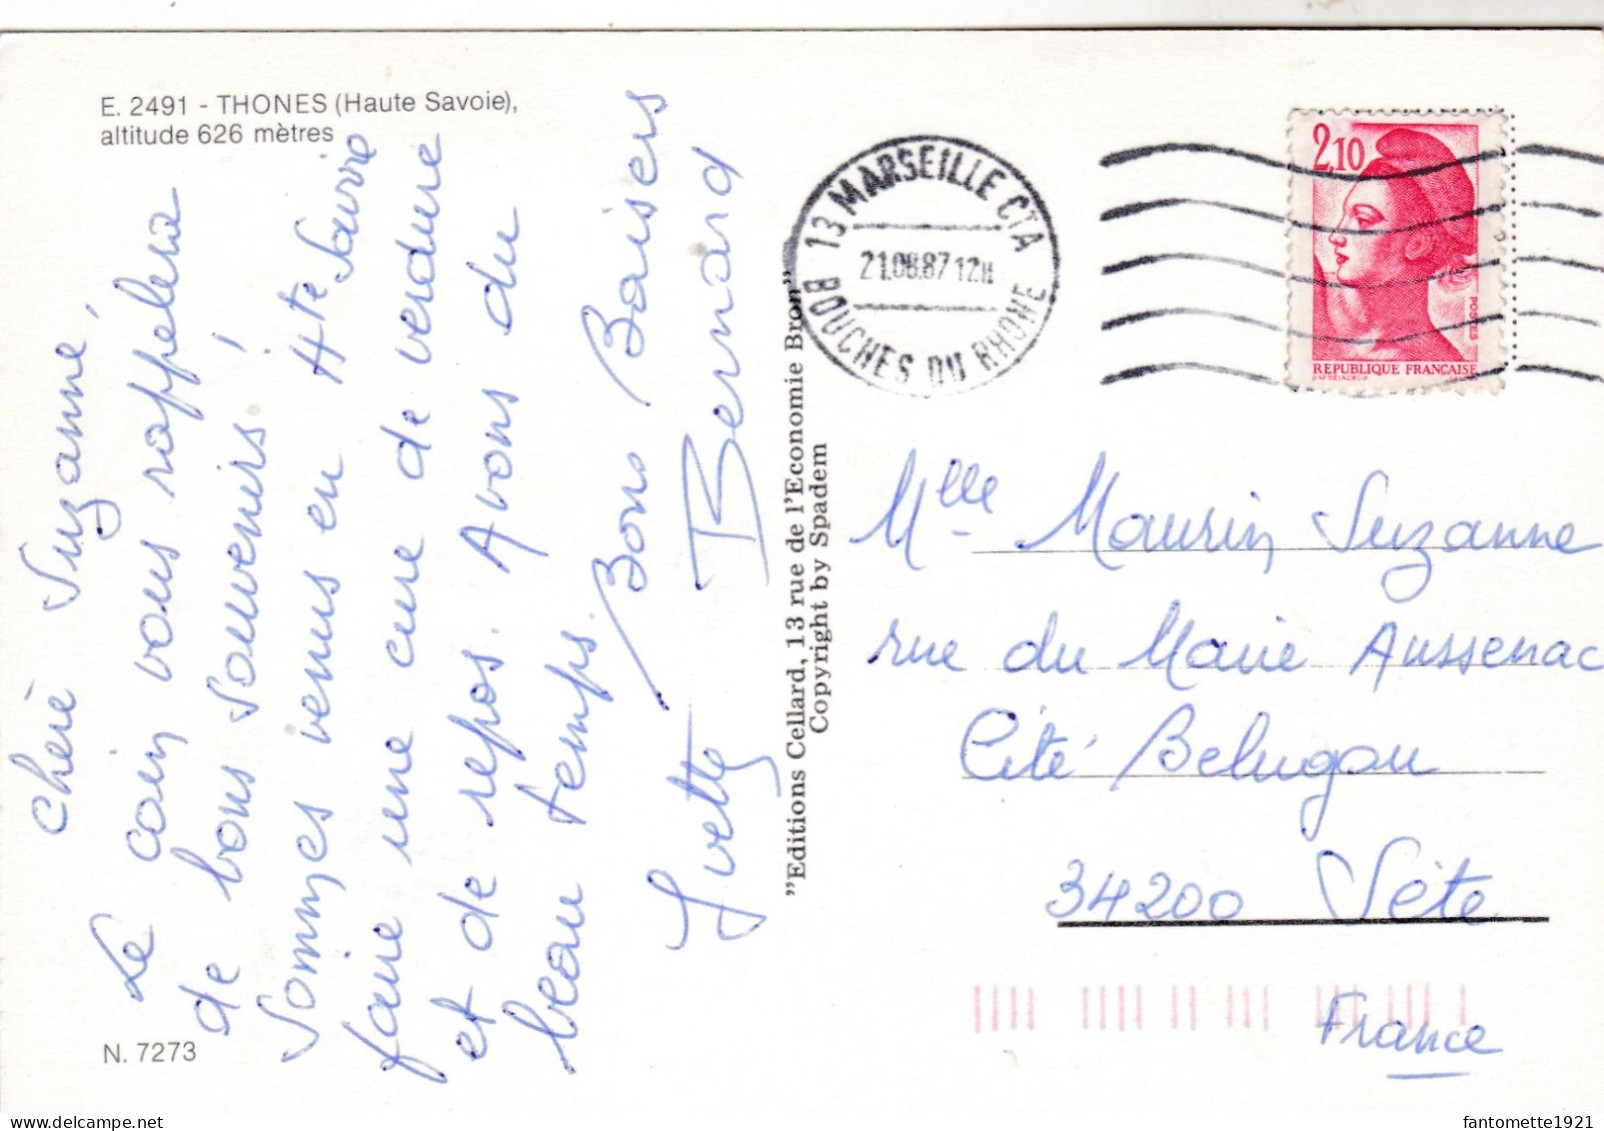 E. 2491 - THONES (Haute Savoie),
altitude 626 mètres
Chère Suzanne,
Le coin vous rappelera
de bons souvenirs!
Sommes venus en Hte Savoie
faire une cure de verdure
et de repos. Avons du
beau temps.
Bons Baisers
Yvette Bernard
N. 7273
"Editions Cellard, 13 rue de l'Economie Bron"
Copyright by Spadem
13 MARSEILLE CTA
21.08.87 12H
BOUCHES DU RHONE
2,10
POSTES
REPUBLIQUE FRANÇAISE
Mlle Maurin Suzanne
rue du Maire Aussenac
Cité Belugou
34200 Sète
France
fantomette1921